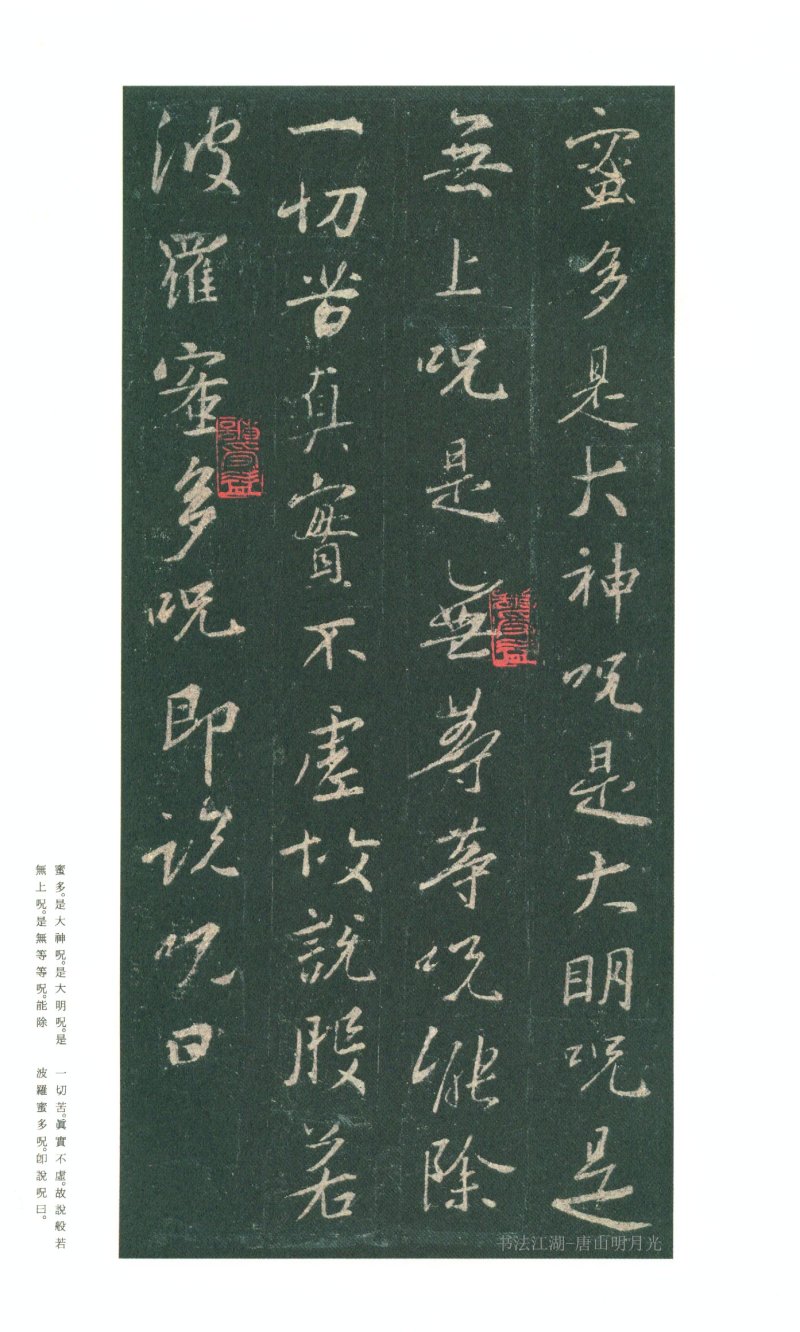 蜜多是大神呪是大明呪是
無上呪是無等等呪能除
一切苦真實不虛故說般若
波羅蜜多呪即說呪曰
蜜多。是大神呪。是大明呪。是
無上呪。是無等等呪。能除
一切苦。眞實不虛。故說般若
波羅蜜多呪。卽說呪曰。
书法江湖-唐山明月光